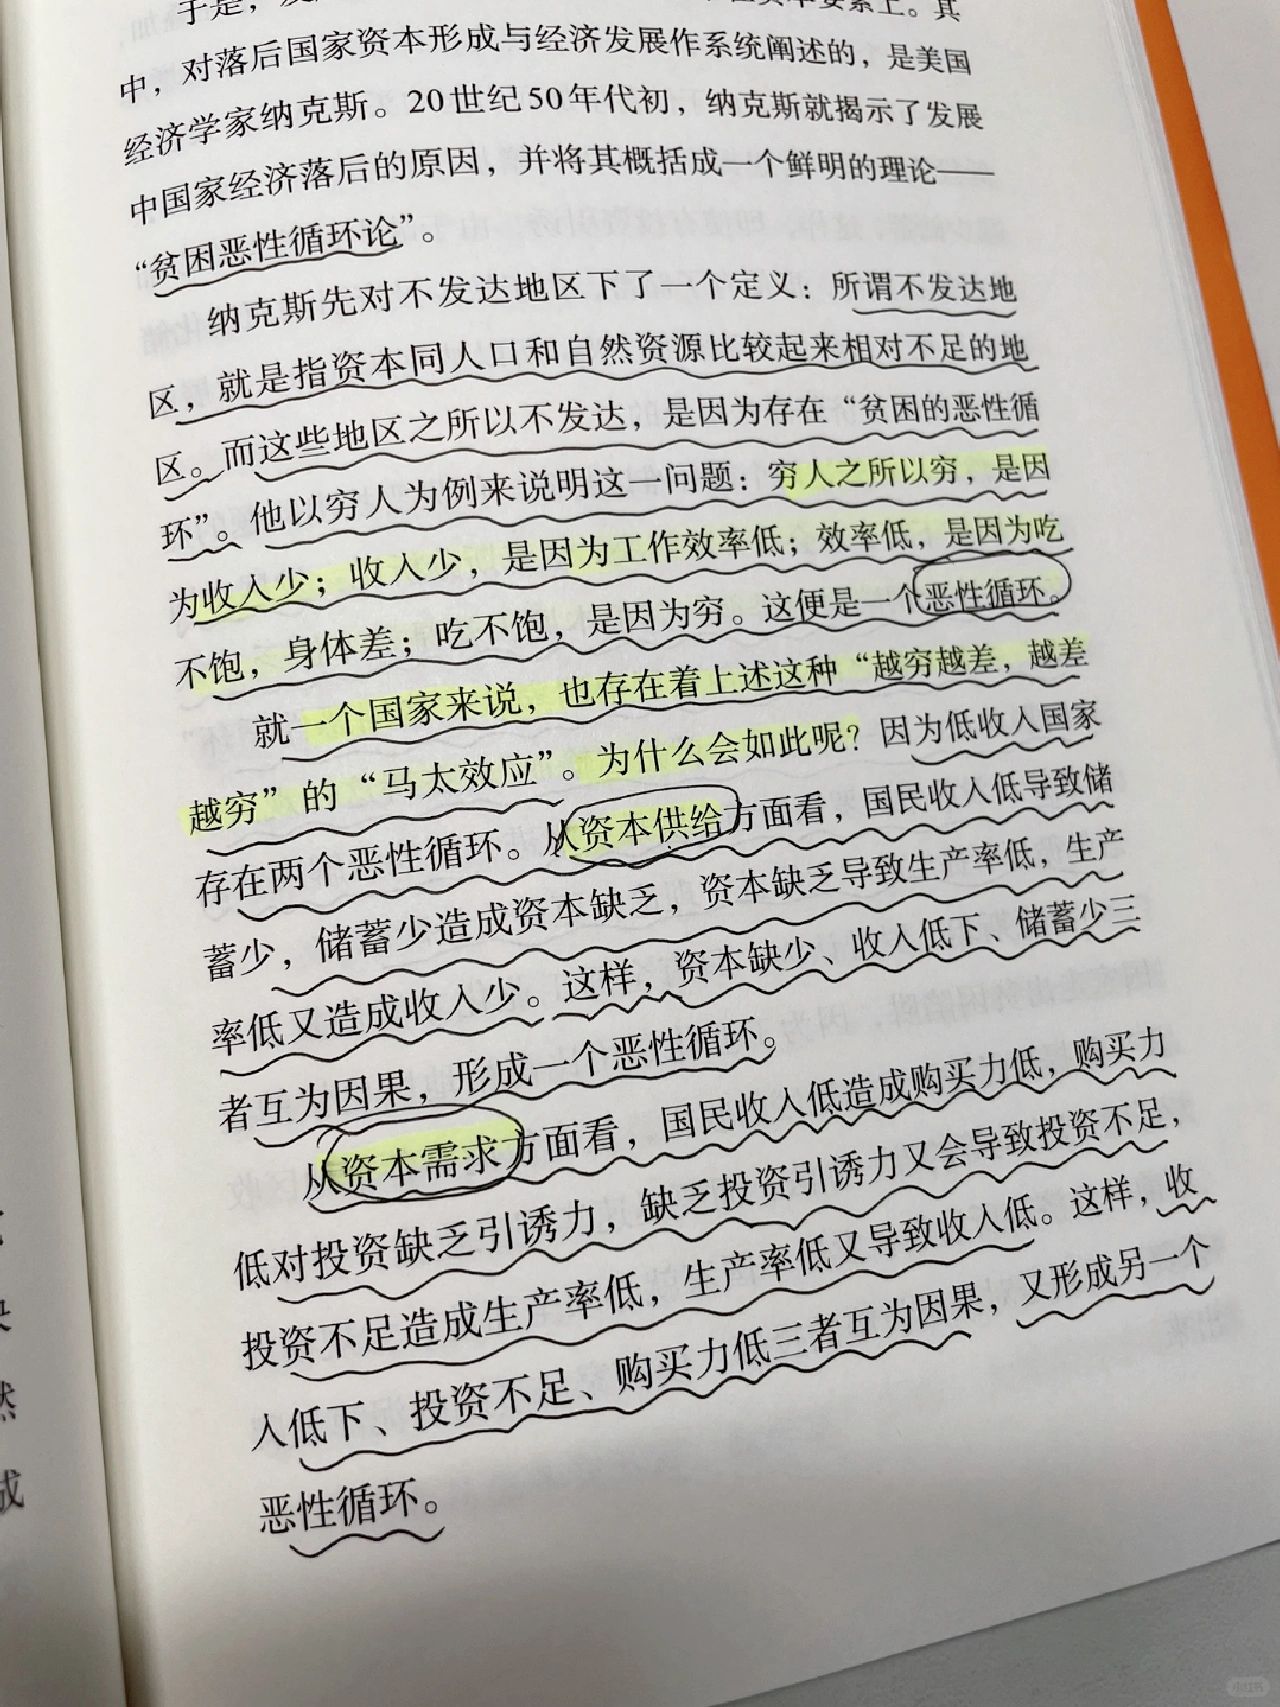 于是，
要素上。其
中，对落后国家资本形成与经济发展作系统阐述的，是美国
经济学家纳克斯。20世纪50年代初，纳克斯就揭示了发展
中国家经济落后的原因，并将其概括成一个鲜明的理论——
“贫困恶性循环论”。
纳克斯先对不发达地区下了一个定义：所谓不发达地
区，就是指资本同人口和自然资源比较起来相对不足的地
区。而这些地区之所以不发达，是因为存在“贫困的恶性循
环”。他以穷人为例来说明这一问题：穷人之所以穷，是因
为收入少；收入少，是因为工作效率低；效率低，是因为吃
不饱，身体差；吃不饱，是因为穷。这便是一个恶性循环。
就一个国家来说，也存在着上述这种“越穷越差，越差
越穷”的“马太效应”。为什么会如此呢？因为低收入国家
存在两个恶性循环。从资本供给方面看，国民收入低导致储
蓄少，储蓄少造成资本缺乏，资本缺乏导致生产率低，生产
率低又造成收入少。这样，资本缺少、收入低下、储蓄少三
者互为因果，形成一个恶性循环。
从资本需求方面看，国民收入低造成购买力低，购买力
低对投资缺乏引诱力，缺乏投资引诱力又会导致投资不足，
投资不足造成生产率低，生产率低又导致收入低。这样，收
入低下、投资不足、购买力低三者互为因果，又形成另一个
恶性循环。
然
成
小红书